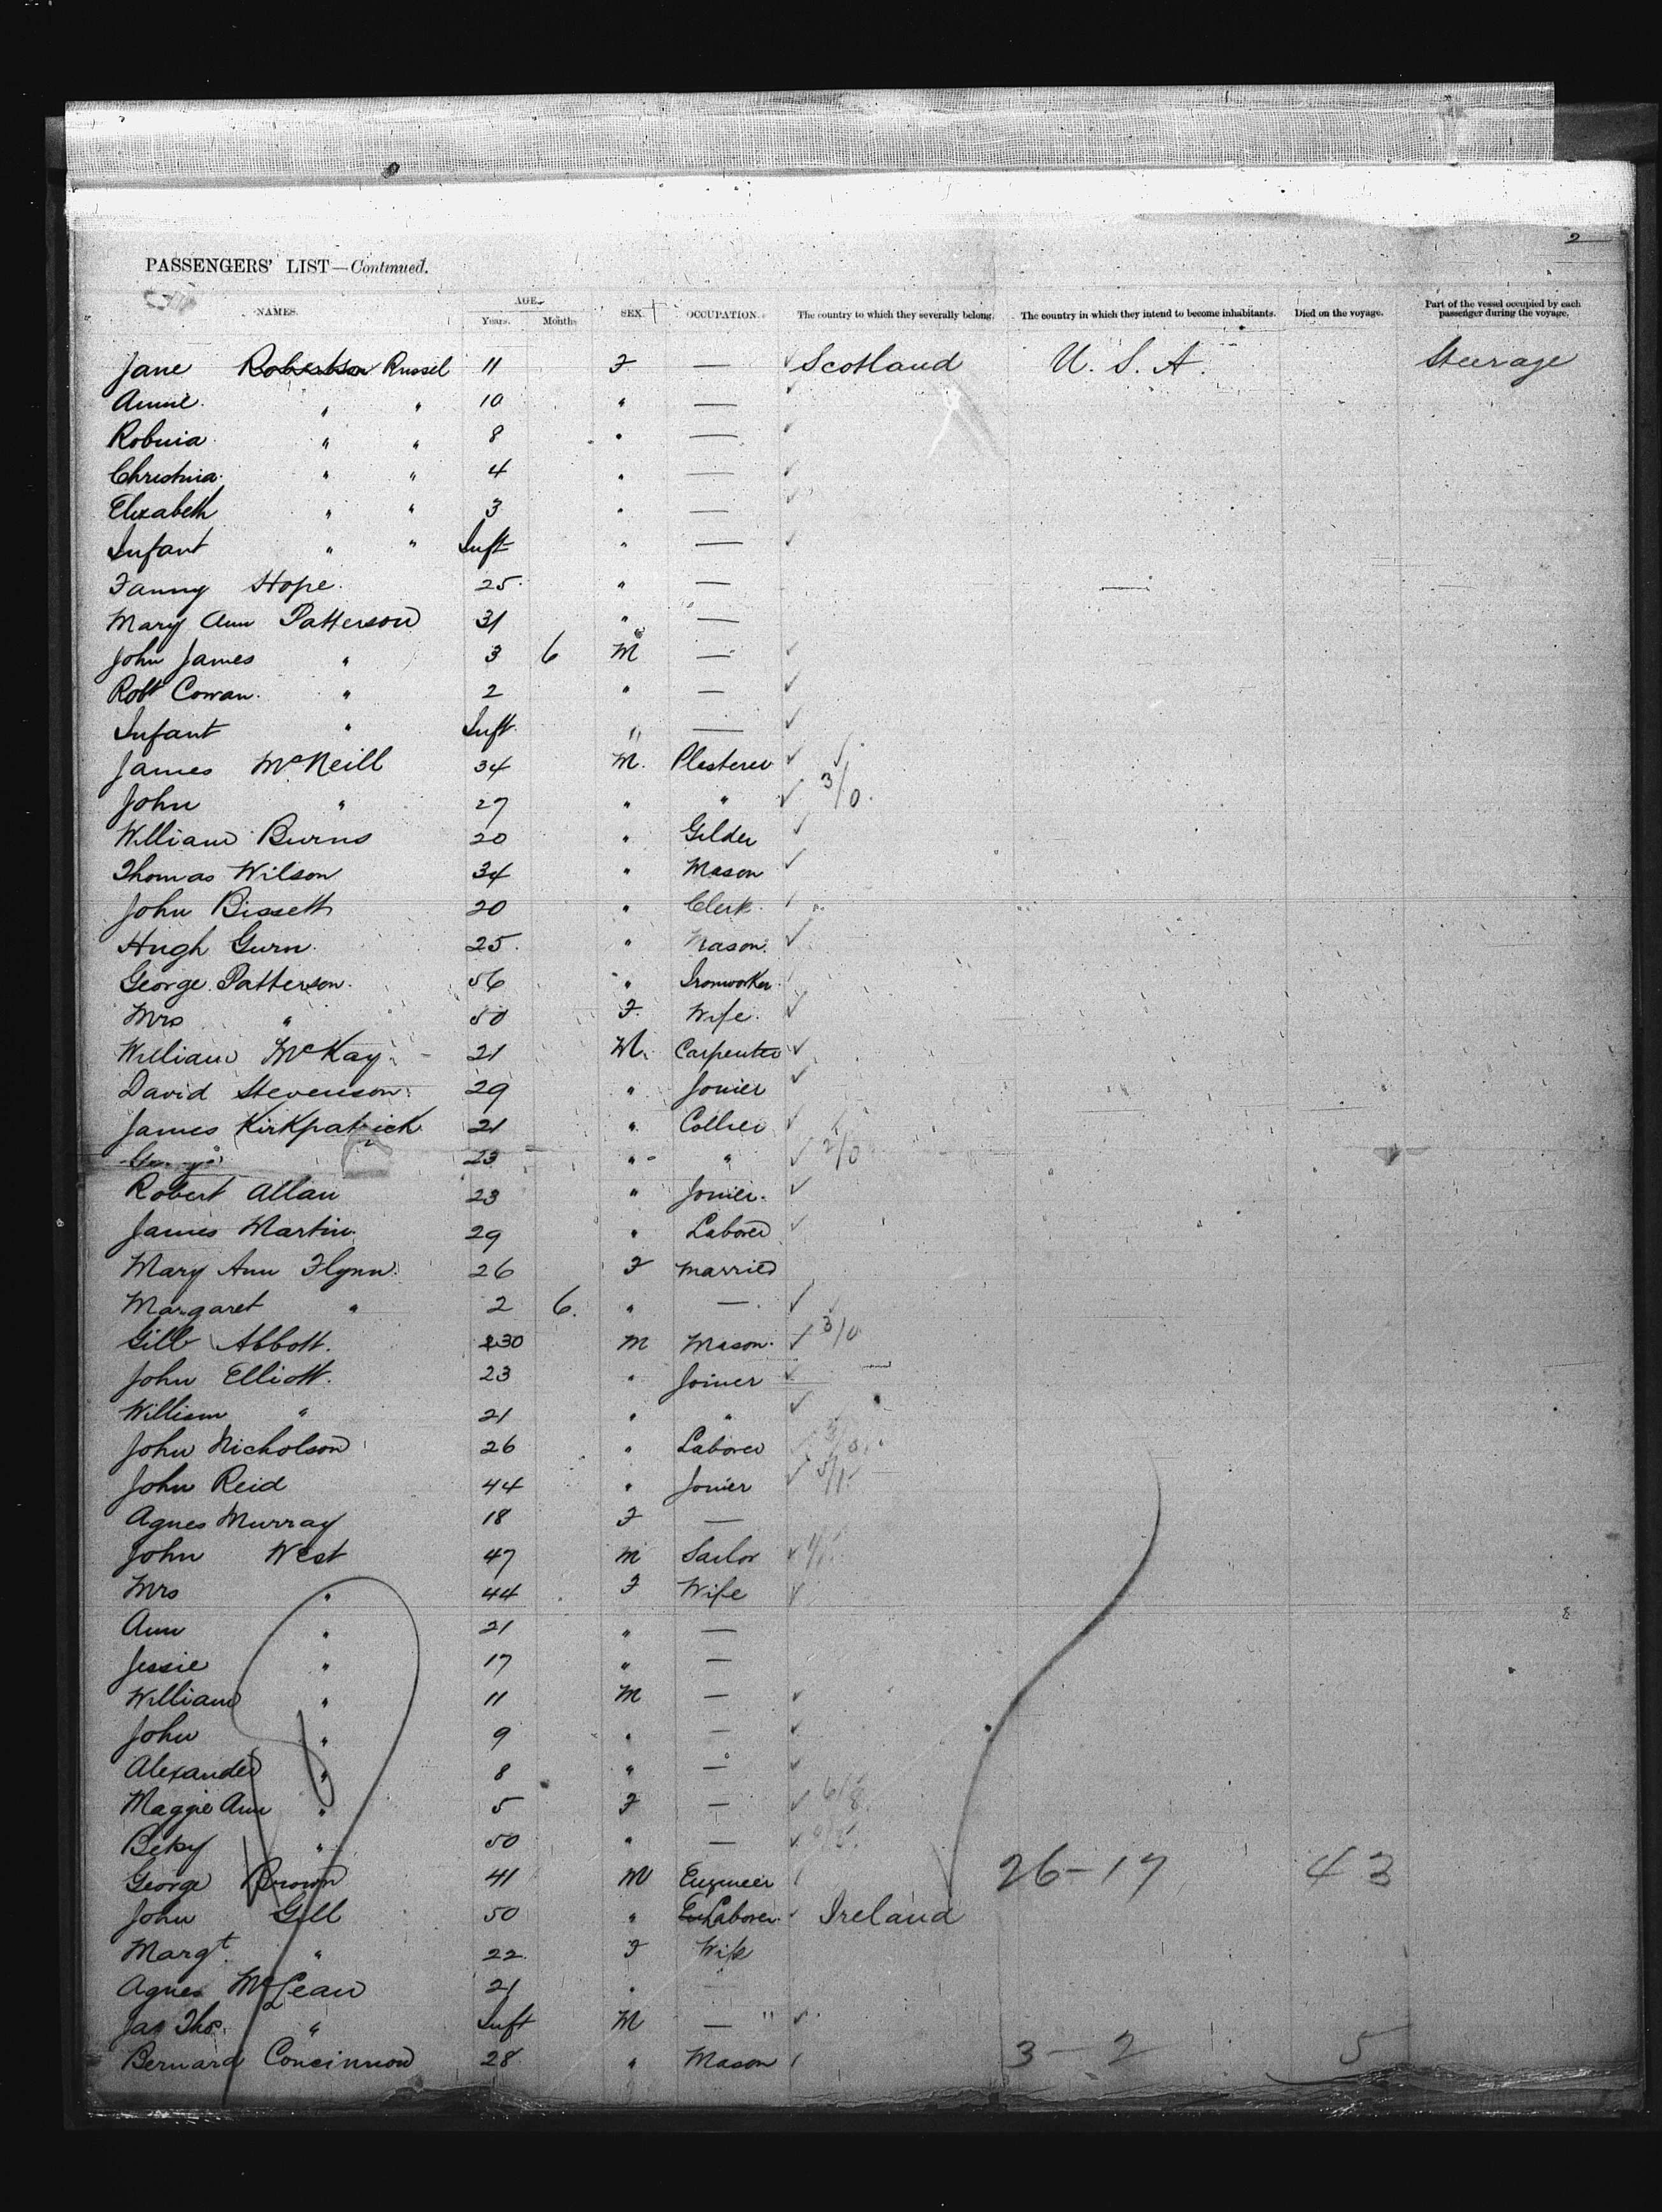 2
PASSENGERS' LIST—Continued.
NAMES. AGE. SEX OCCUPATION. The country to which they severally belong. The country in which they intend to become inhabitants. Died on the voyage. Part of the vessel occupied by each passenger during the voyage.
Years. Months
Jane Robertson Russel 11 F — Scotland U. S. A. Steerage
Annie " " 10 " —
Robina " " 8 " —
Christina " " 4 " —
Elizabeth " " 3 " —
Infant " " Inft " —
Fanny Hope 25 " —
Mary Ann Patterson 31 " —
John James " 3 6 M —
Robt Cowan " 2 " —
Infant " Inft " —
James McNeill 34 M. Plasterer
John " 27 " " 3/0
William Burns 20 " Gilder
Thomas Wilson 34 " Mason
John Bissett 20 " Clerk
Hugh Gurn 25 " Mason
George Patterson 56 " Ironworker
Mrs " 50 F. Wife
William McKay 21 M. Carpenter
David Stevenson 29 " Joiner
James Kirkpatrick 21 " Collier
23 " " 2/0
Robert Allan 23 " Joiner
James Martin 29 " Laborer
Mary Ann Flynn 26 F Married
Margaret " 2 6 " —
Gilb Abbott. 30 M Mason 3/0
John Elliott. 23 " Joiner
William " 21 " "
John Nicholson 26 " Laborer
John Reid 44 " Joiner
Agnes Murray 18 F —
John West 47 M Sailor
Mrs " 44 F Wife
Ann " 21 " —
Jessie " 17 " —
William " 11 M —
John " 9 " —
Alexander " 8 " —
Maggie Ann " 5 F —
Beky " 50 " —
George Brown 41 M Engineer 26-17 43
John Gill 50 " Laborer Ireland
Margt " 22 F Wife
Agnes McLean 21 "
Jas Thos " Inft M — "
Bernard Concinnon 28 " Mason 3-2 5